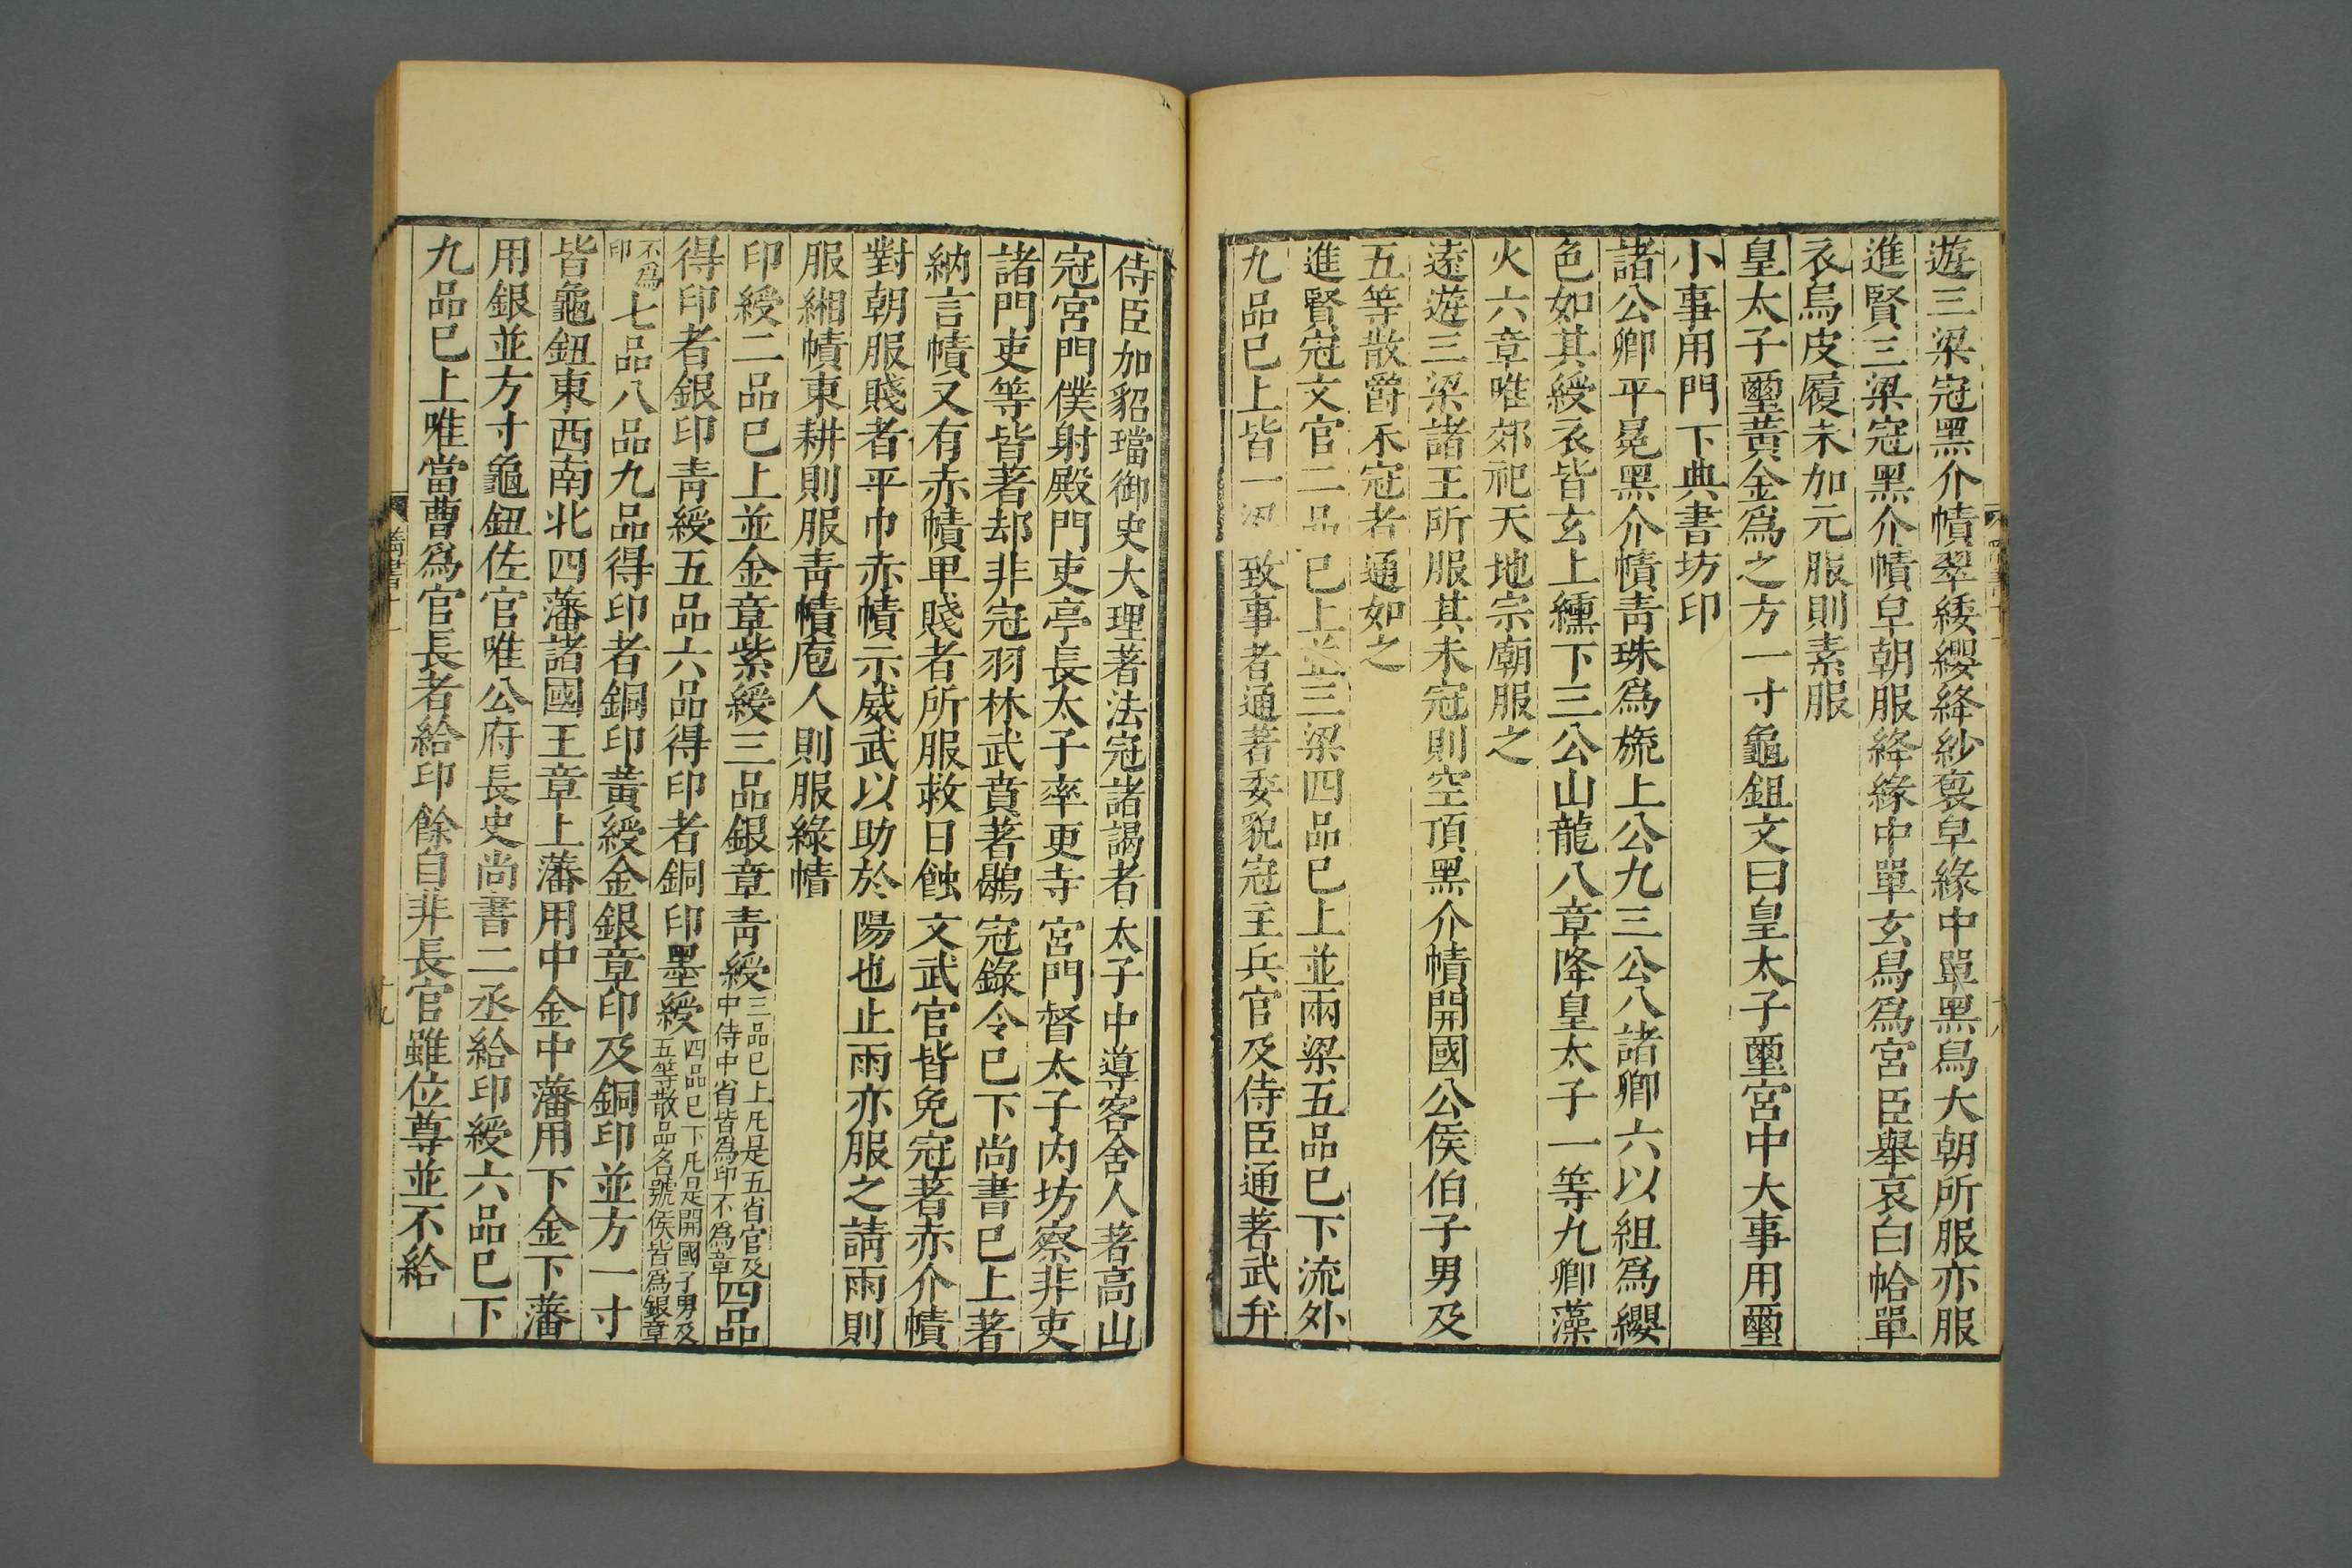 遊三梁冠黑介幘翠緌纓絳紗袍皁緣中單黑舄大朝所服亦服
進賢三梁冠黑介幘皁朝服絳緣中單玄舄爲宮臣舉哀白帢單
衣烏皮履未加元服則素服
皇太子璽黃金爲之方一寸龜鈕文曰皇太子璽宮中大事用璽
小事用門下典書坊印
諸公卿平冕黑介幘青珠爲旒上公九三公八諸卿六以組爲纓
色如其綬衣皆玄上纁下三公山龍八章降皇太子一等九卿藻
火六章唯郊祀天地宗廟服之
遠遊三梁諸王所服其未冠則空頂黑介幘開國公侯伯子男及
五等散爵未冠者通如之
進賢冠文官二品已上並三梁四品已上並兩梁五品已下流外
九品已上皆一梁致事者通著委貌冠主兵官及侍臣通著武弁
侍臣加貂璫御史大理著法冠諸謁者太子中導客舍人著高山
冠宮門僕射殿門吏亭長太子率更寺宮門督太子内坊察非吏
諸門吏等皆著却非冠羽林武賁著鶡冠錄令已下尚書已上著
納言幘又有赤幘卑賤者所服救日蝕文武官皆免冠著赤介幘
對朝服賤者平巾赤幘示威武以助於陽也止雨亦服之請雨則
服緗幘東耕則服青幘庖人則服綠幘
印綬二品已上並金章紫綬三品銀章青綬三品已上凡是五省官及中侍中省皆爲印不爲章四品
得印者銀印青綬五品六品得印者銅印墨綬四品已下凡是開國子男及五等散品名號侯皆爲銀章
不爲印七品八品九品得印者銅印黃綬金銀章印及銅印並方一寸
皆龜鈕東西南北四藩諸國王章上藩用中金中藩用下金下藩
用銀並方寸龜鈕佐官唯公府長史尚書二丞給印綬六品已下
九品已上唯當曹爲官長者給印餘自非長官雖位尊並不給
十九